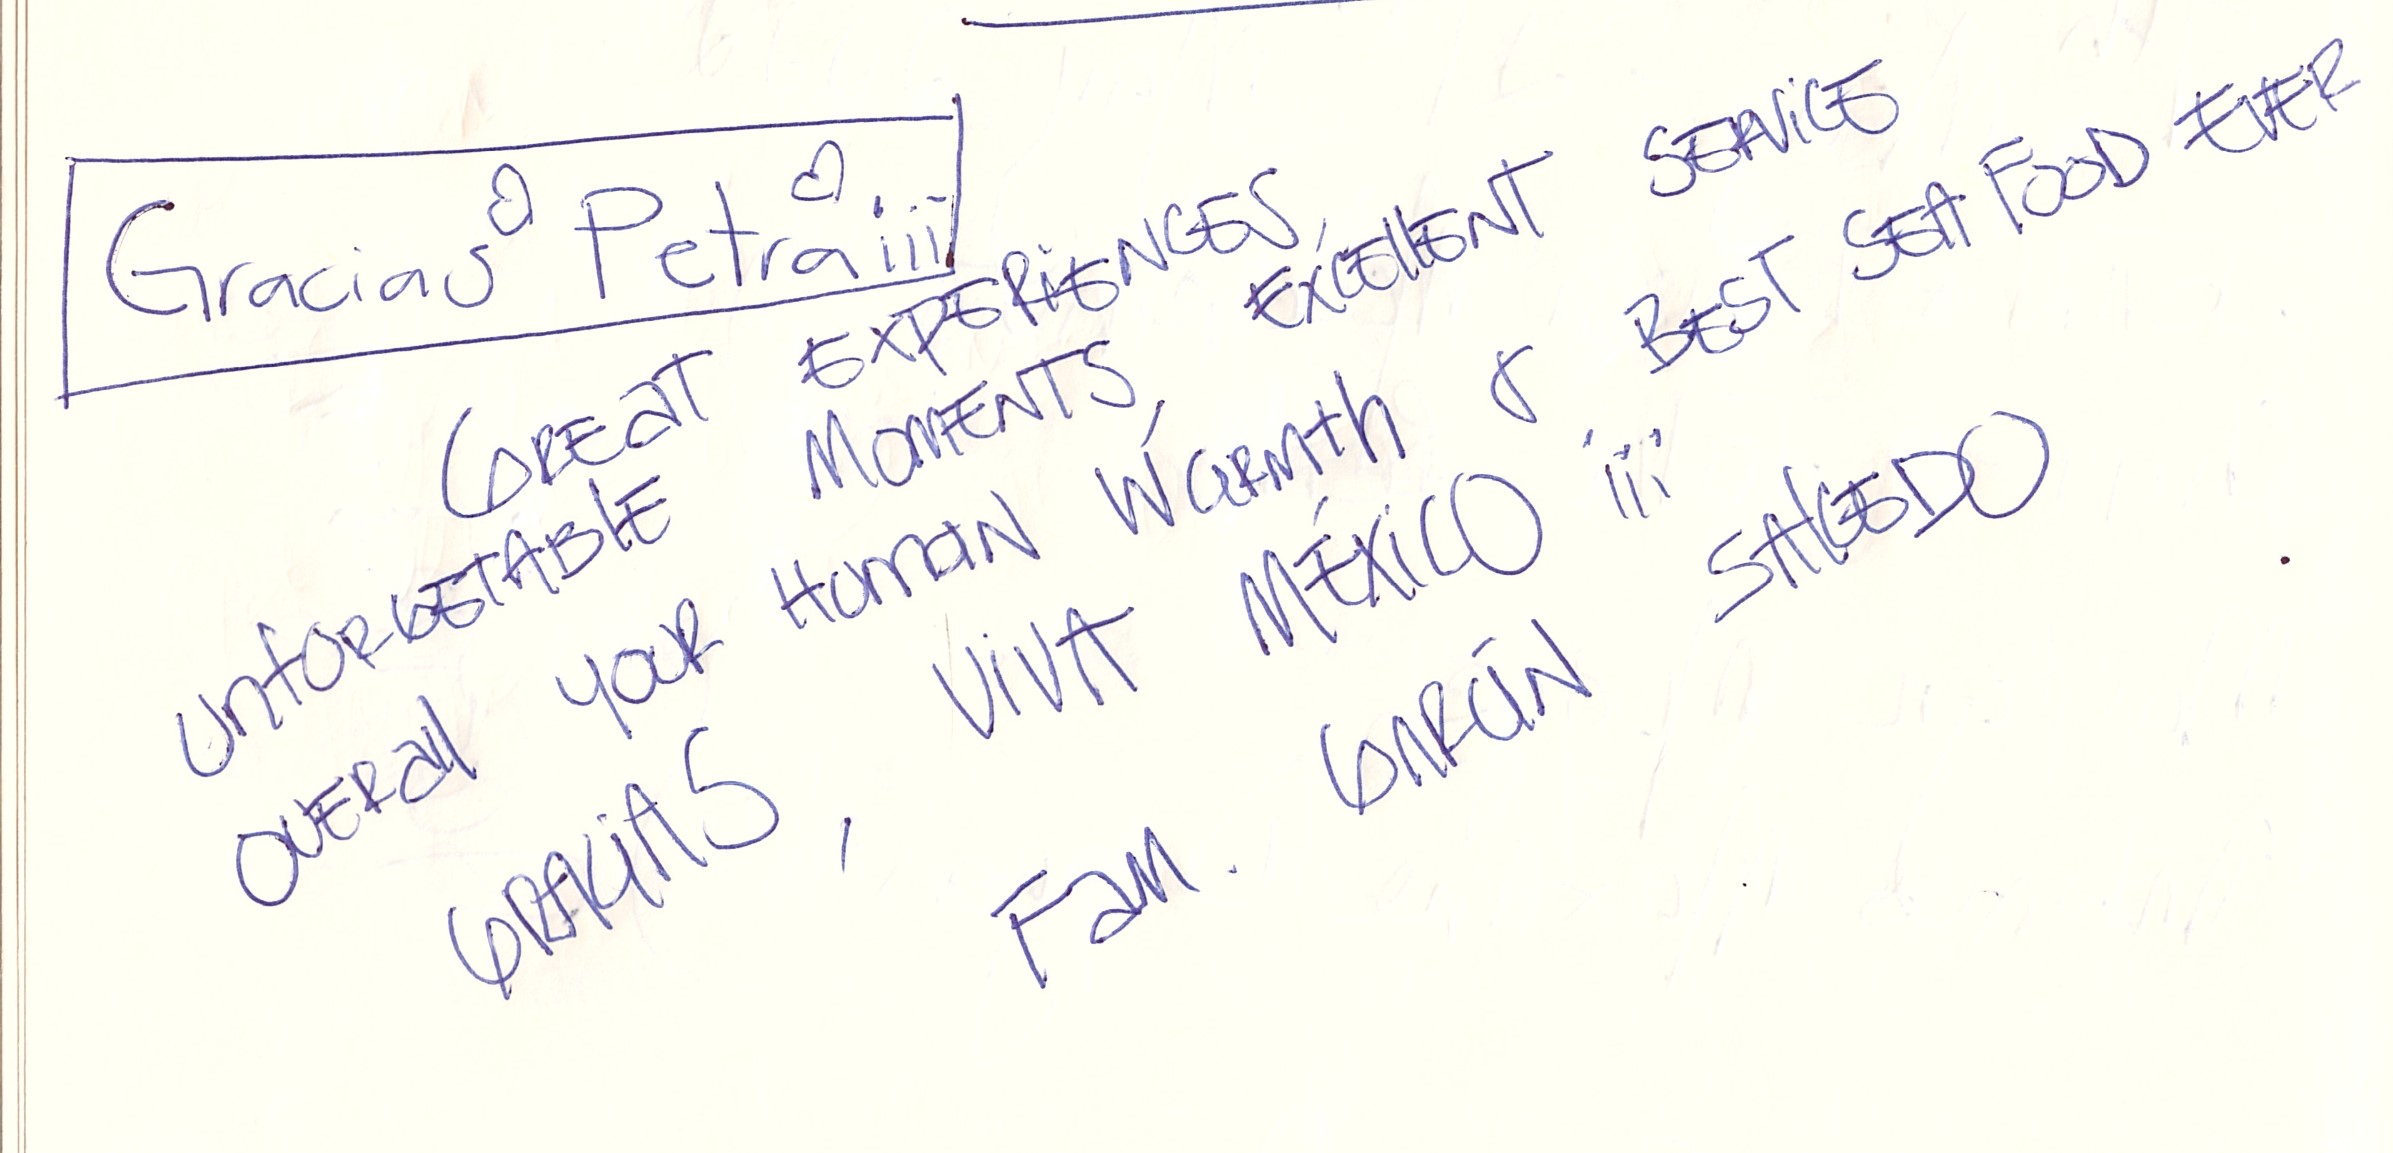 Gracias Petra ¡¡¡
GREAT EXPERIENCES, EXCELLENT SERVICE
UNFORGETABLE MOMENTS, & BEST SEA FOOD EVER
OVERAll YOUR HUMAN WARMTH
GRACIAS, VIVA MÉXICO ¡¡¡
FAM. GARCÍN SALCEDO